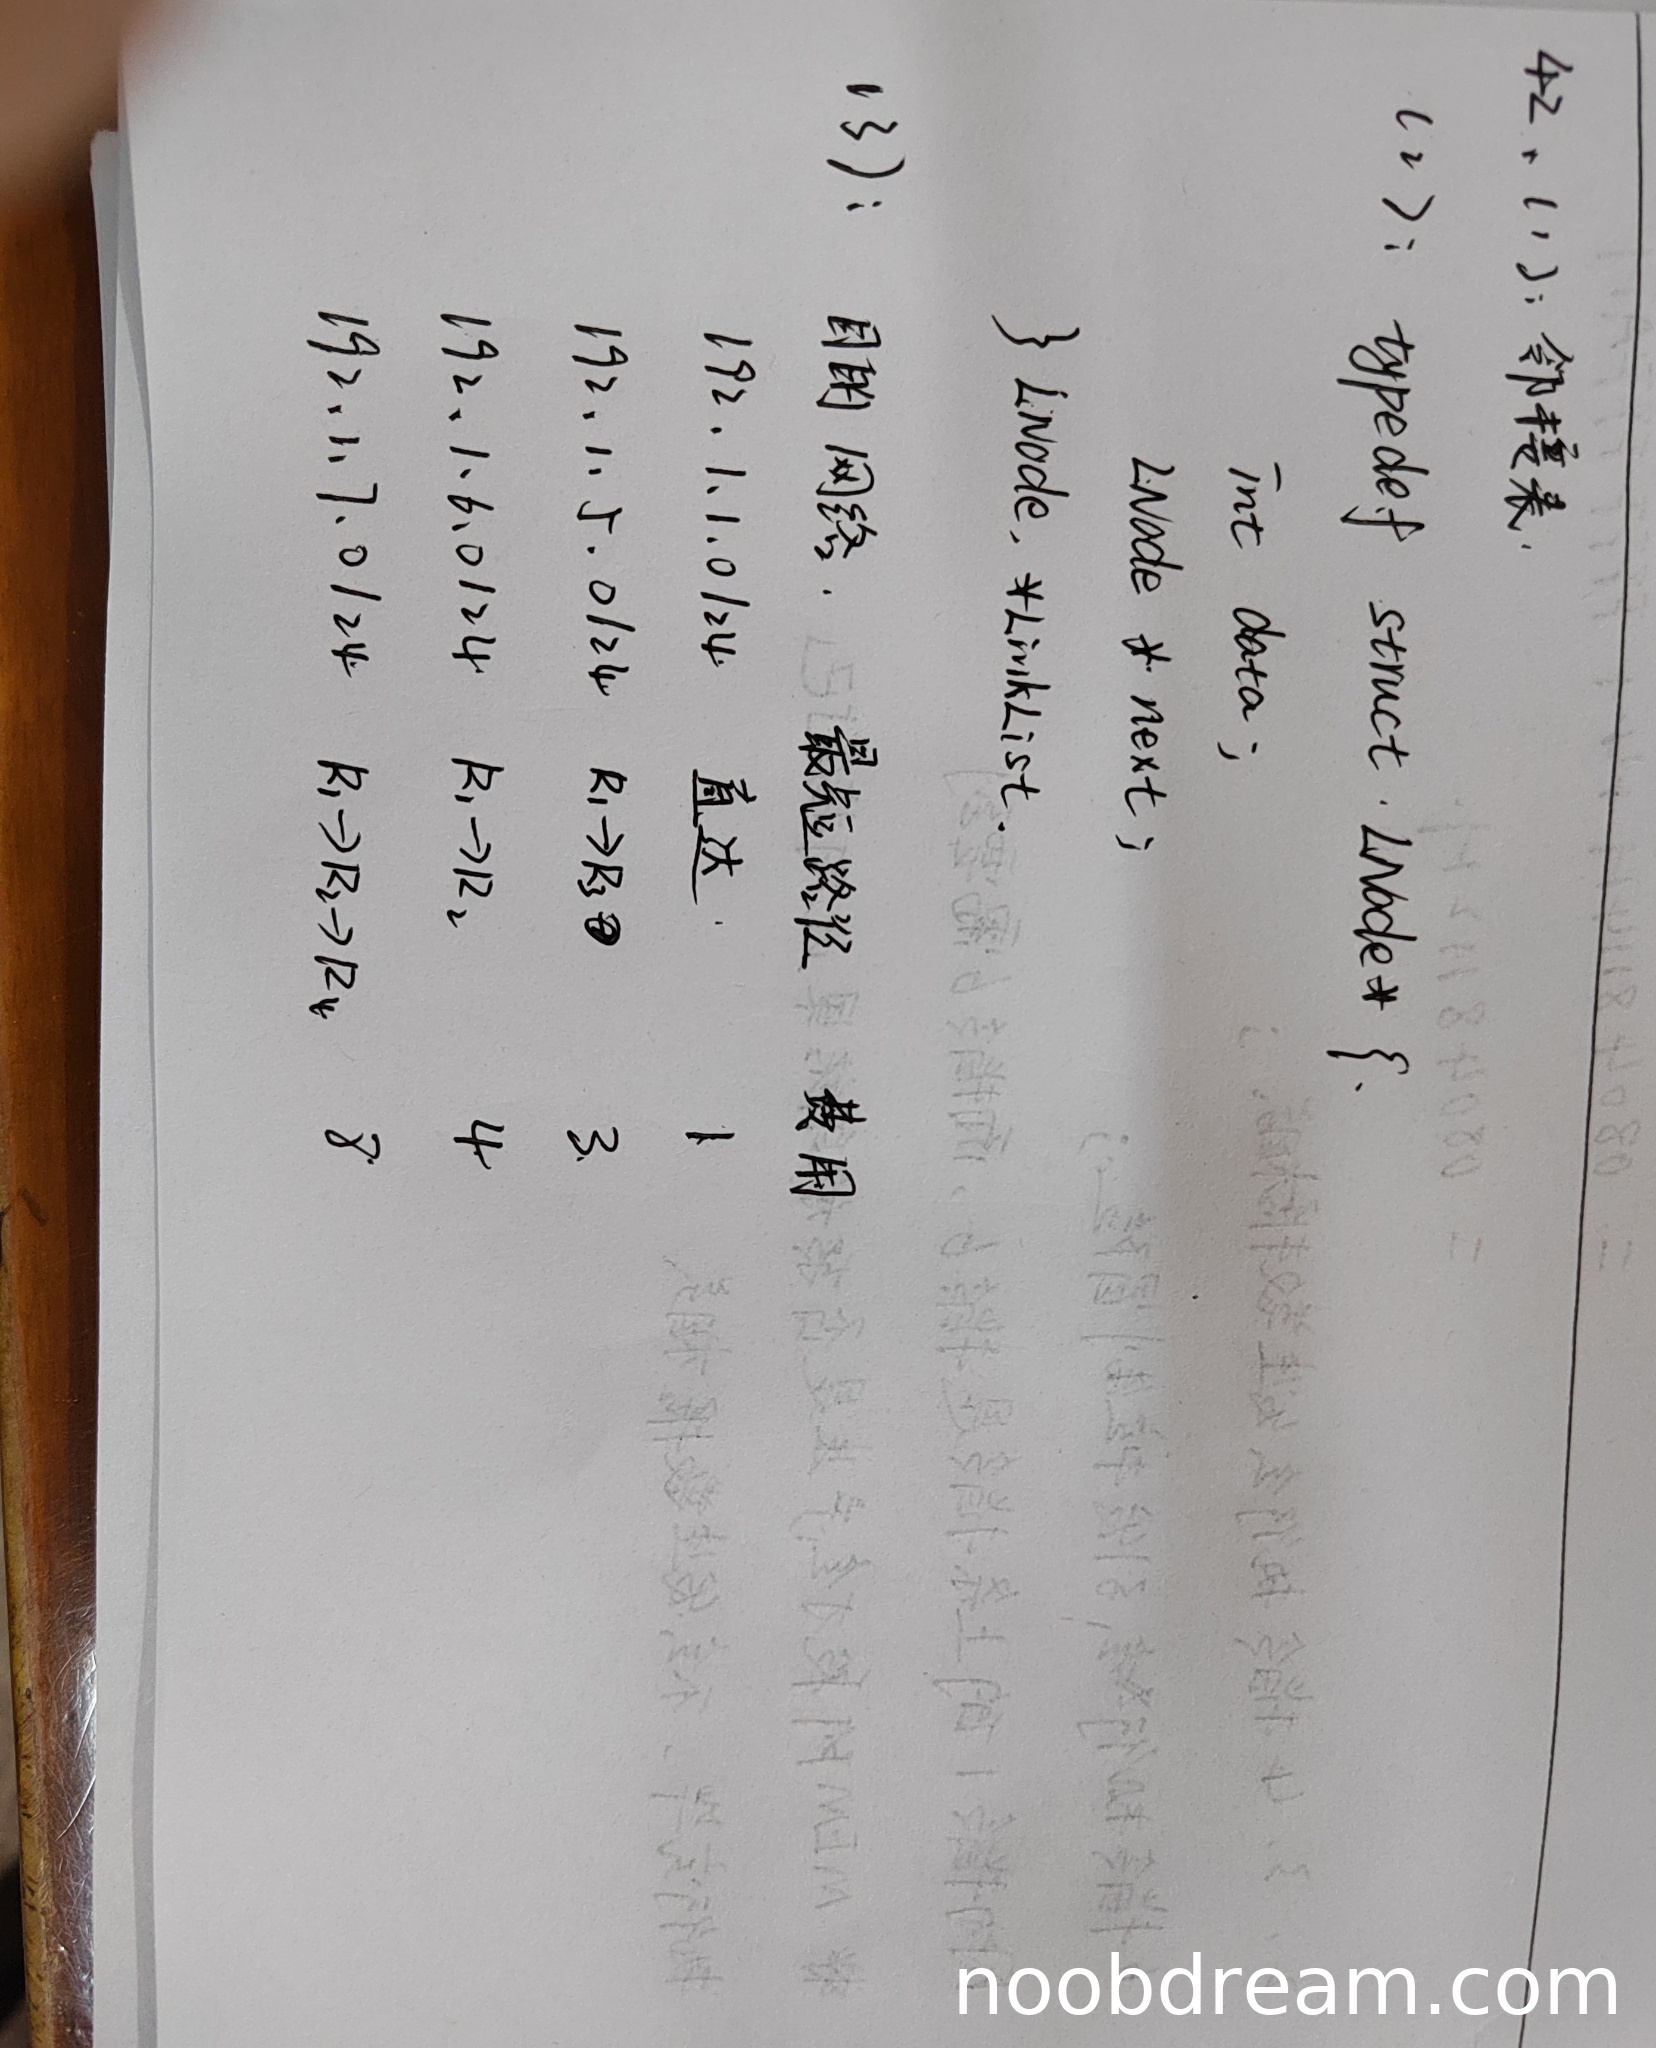 42、(1): 邻接表.
(2): typedef struct LNode* {
int data;
LNode * next;
} LNode, *LinkList.
(3): 目的网络. 最短路径 费用
192.1.1.0/24 直达. 1
192.1.5.0/24 R1→R3 3
192.1.6.0/24 R1→R2 4
192.1.7.0/24 R1→R2→R4 8
noobdream.com